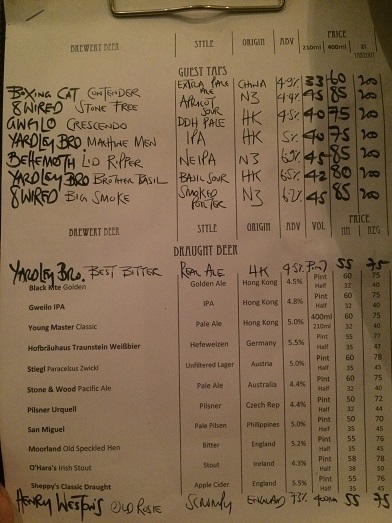 PRICE
BREWERY BEER STYLE ORIGIN ABV 210ml 400ml TAKEOUT
GUEST TAPS
BOXING CAT CONTENDER EXTRA PALE ALE CHINA 4.9% 33 60 20
8 WIRED STONE FREE APRICOT SOUR NZ 4.4% 45 85 20
GWEILO CRESCENDO DDH PALE HK 4.5% 40 75 20
YARDLEY BRO MACHINE MEN IPA HK 5% 40 75 20
BEHEMOTH LID RIPPER NEIPA NZ 45 85 20
YARDLEY BRO BROTHER BASIL BASIL SOUR HK 42 80 20
8 WIRED BIG SMOKE SMOKED PORTER NZ 45 85 20
PRICE
BREWERY BEER STYLE ORIGIN ABV VOL HH REG
DRAUGHT BEER
YARDLEY BRO. BEST BITTER REAL ALE HK 4.5% Pint 55 75
Black Kite Golden Golden Ale Hong Kong 4.5% Pint 60 75
Half 32 40
Gweilo IPA IPA Hong Kong 4.8% Pint 60 75
Half 32 40
Young Master Classic Pale Ale Hong Kong 5.0% 400ml 60 75
210ml 32 40
Hofbräuhaus Traunstein Weißbier Hefeweizen Germany 5.5% Pint 55 77
Half 35 47
Stiegl Paracelsus Zwickl Unfiltered Lager Austria 5.0% Pint 60 78
Half 35 45
Stone & Wood Pacific Ale Pale Ale Australia 4.4% Pint 60 75
Half 32 40
Pilsner Urquell Pilsner Czech Rep 4.4% Pint 50 72
Half 32 44
San Miguel Pale Pilsen Philippines 5.0% Pint 50 70
Half 35 45
Moorland Old Speckled Hen Bitter England 5.2% Pint 55 76
Half 35 45
O'Hara's Irish Stout Stout Ireland 4.3% Pint 58 78
Half 38 50
Sheppy's Classic Draught Apple Cider England 5.5% Pint 56 75
Half 35 45
HENRY WESTONS OLD ROSIE SCRUMPY ENGLAND 7.3% 400ml 55 75